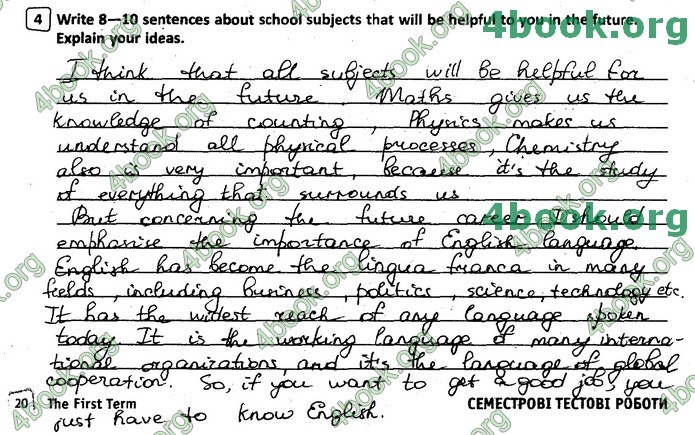 4 Write 8—10 sentences about school subjects that will be helpful to you in the future.
Explain your ideas.
I think that all subjects will be helpful for
us in the future. Maths gives us the
knowledge of counting, Physics makes us
understand all physical processes, Chemistry
also is very important, because it's the study
of everything that surrounds us
But concerning the future career I should
emphasise the importance of English language.
English has become the lingua franca in many
fields, including business, politics, science, technology etc.
It has the widest reach of any language spoken
today. It is the working language of many interna-
tional organizations, and it's the language of global
cooperation. So, if you want to get a good job, you
20 The First Term СЕМЕСТРОВІ ТЕСТОВІ РОБОТИ
just have to know English.
4book.org
4book.org
4book.org
4book.org
4book.org
4book.org